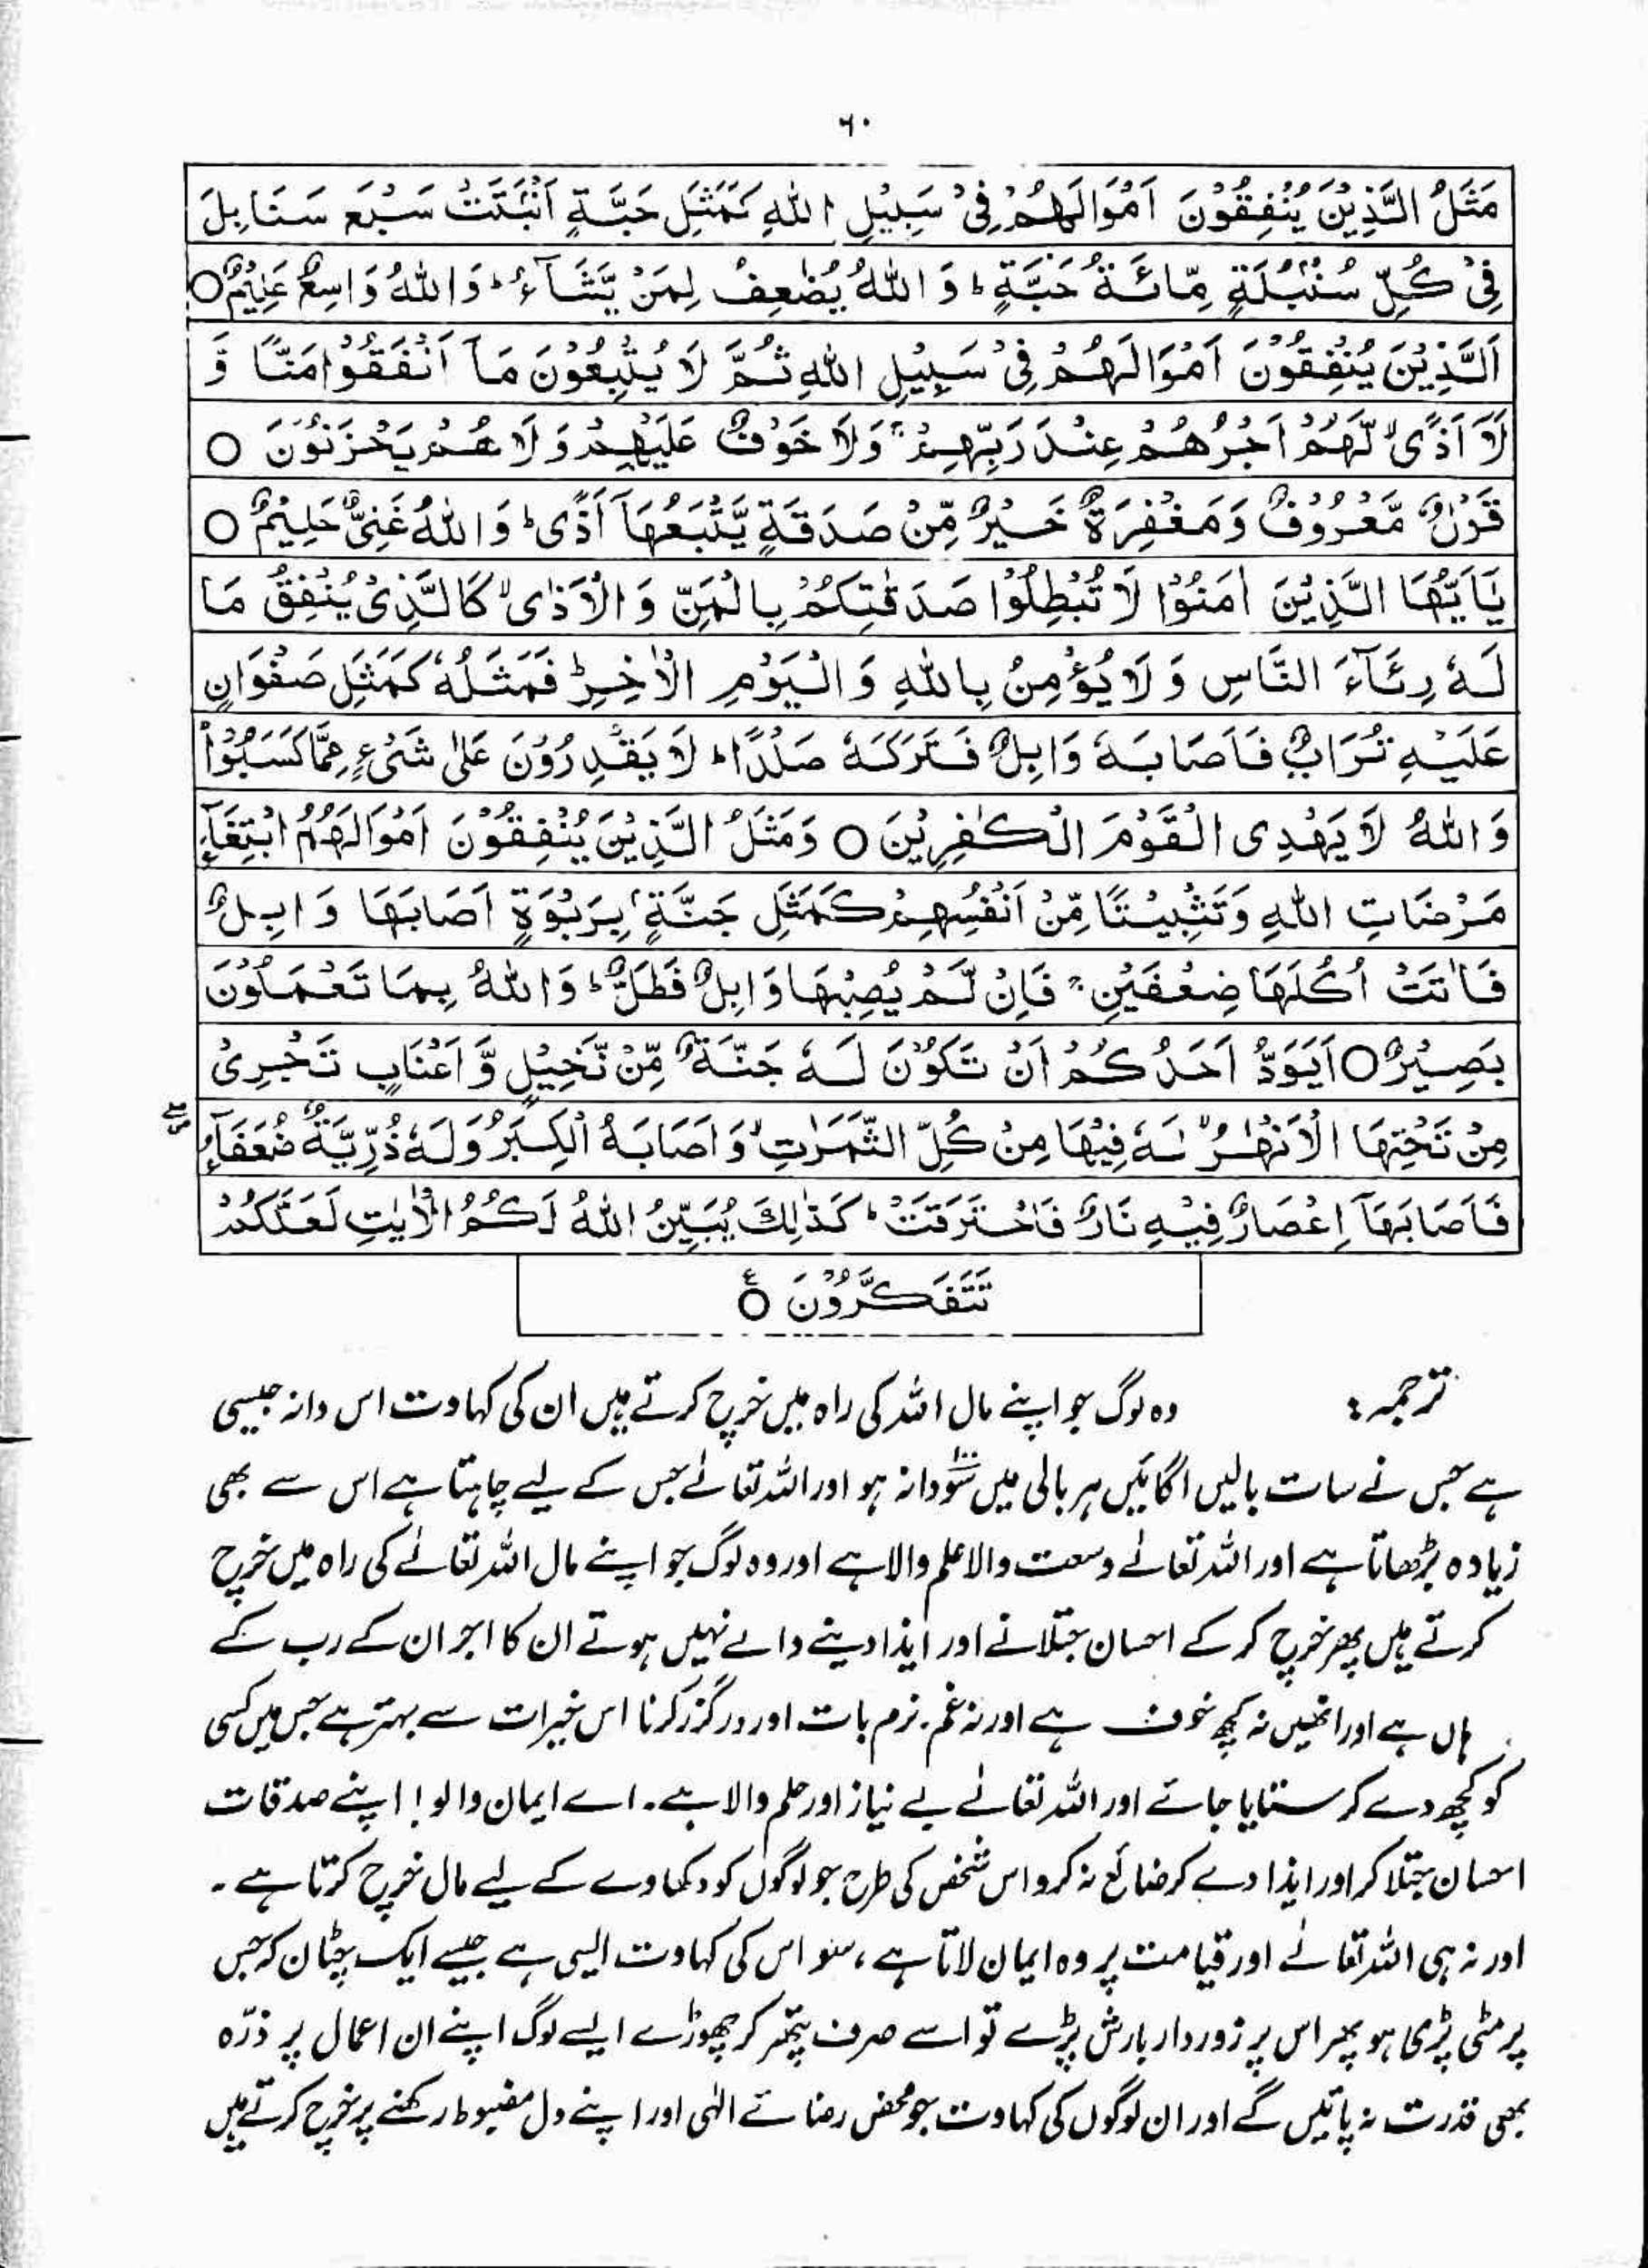 ۶۰
مَثَلُ الَّذِیْنَ یُنْفِقُوْنَ اَمْوَالَهُمْ فِیْ سَبِیْلِ اللّٰهِ كَمَثَلِ حَبَّةٍ اَنْۢبَتَتْ سَبْعَ سَنَابِلَ
فِیْ كُلِّ سُنْۢبُلَةٍ مِّائَةُ حَبَّةٍ ؕ وَ اللّٰهُ یُضٰعِفُ لِمَنْ یَّشَآءُ ؕ وَ اللّٰهُ وَاسِعٌ عَلِیْمٌ ○
اَلَّذِیْنَ یُنْفِقُوْنَ اَمْوَالَهُمْ فِیْ سَبِیْلِ اللّٰهِ ثُمَّ لَا یُتْبِعُوْنَ مَاۤ اَنْفَقُوْا مَنًّا وَّ
لَاۤ اَذًی ۙ لَّهُمْ اَجْرُهُمْ عِنْدَ رَبِّهِمْ ۚ وَلَا خَوْفٌ عَلَیْهِمْ وَ لَا هُمْ یَحْزَنُوْنَ ○
قَوْلٌ مَّعْرُوْفٌ وَ مَغْفِرَةٌ خَیْرٌ مِّنْ صَدَقَةٍ یَّتْبَعُهَاۤ اَذًی ؕ وَ اللّٰهُ غَنِیٌّ حَلِیْمٌ ○
یٰۤاَیُّهَا الَّذِیْنَ اٰمَنُوْا لَا تُبْطِلُوْا صَدَقٰتِكُمْ بِالْمَنِّ وَ الْاَذٰی ۙ كَالَّذِیْ یُنْفِقُ مَا
لَهٗ رِئَآءَ النَّاسِ وَ لَا یُؤْمِنُ بِاللّٰهِ وَ الْیَوْمِ الْاٰخِرِ ؕ فَمَثَلُهٗ كَمَثَلِ صَفْوَانٍ
عَلَیْهِ تُرَابٌ فَاَصَابَهٗ وَابِلٌ فَتَرَكَهٗ صَلْدًا ؕ لَا یَقْدِرُوْنَ عَلٰی شَیْءٍ مِّمَّا كَسَبُوْا
وَ اللّٰهُ لَا یَهْدِی الْقَوْمَ الْكٰفِرِیْنَ ○ وَ مَثَلُ الَّذِیْنَ یُنْفِقُوْنَ اَمْوَالَهُمُ ابْتِغَآءَ
مَرْضَاتِ اللّٰهِ وَ تَثْبِیْتًا مِّنْ اَنْفُسِهِمْ كَمَثَلِ جَنَّةٍۭ بِرَبْوَةٍ اَصَابَهَا وَابِلٌ
فَاٰتَتْ اُكُلَهَا ضِعْفَیْنِ ۚ فَاِنْ لَّمْ یُصِبْهَا وَابِلٌ فَطَلٌّ ؕ وَ اللّٰهُ بِمَا تَعْمَلُوْنَ
بَصِیْرٌ ○ اَیَوَدُّ اَحَدُكُمْ اَنْ تَكُوْنَ لَهٗ جَنَّةٌ مِّنْ نَّخِیْلٍ وَّ اَعْنَابٍ تَجْرِیْ
مِنْ تَحْتِهَا الْاَنْهٰرُ ۙ لَهٗ فِیْهَا مِنْ كُلِّ الثَّمَرٰتِ ۙ وَ اَصَابَهُ الْكِبَرُ وَ لَهٗ ذُرِّیَّةٌ ضُعَفَآءُ
فَاَصَابَهَاۤ اِعْصَارٌ فِیْهِ نَارٌ فَاحْتَرَقَتْ ؕ كَذٰلِكَ یُبَیِّنُ اللّٰهُ لَكُمُ الْاٰیٰتِ لَعَلَّكُمْ
تَتَفَكَّرُوْنَ ○ ع
ترجمہ : وہ لوگ جو اپنے مال اللہ کی راہ میں خرچ کرتے ہیں ان کی کہاوت اس دانہ جیسی
ہے جس نے سات بالیں اگائیں ہر بالی میں سو۱۰۰ دانہ ہو اور اللہ تعالےٰ جس کے لیے چاہتا ہے اس سے بھی
زیادہ بڑھاتا ہے اور اللہ تعالےٰ وسعت والا علم والا ہے اور وہ لوگ جو اپنے مال اللہ تعالےٰ کی راہ میں خرچ
کرتے ہیں پھر خرچ کر کے احسان جتلانے اور ایذا دینے والے نہیں ہوتے ان کا اجر ان کے رب کے
ہاں ہے اور انھیں نہ کچھ خوف ہے اور نہ غم۔ نرم بات اور درگزر کرنا اس خیرات سے بہتر ہے جس میں کسی
کو کچھ دے کر ستایا جائے اور اللہ تعالےٰ بے نیاز اور حلم والا ہے۔ اے ایمان والو! اپنے صدقات
احسان جتلا کر اور ایذا دے کر ضائع نہ کرو اس شخص کی طرح جو لوگوں کو دکھاوے کے لیے مال خرچ کرتا ہے ۔
اور نہ ہی اللہ تعالےٰ اور قیامت پر وہ ایمان لاتا ہے ، سنو اس کی کہاوت ایسی ہے جیسے ایک چٹان کہ جس
پر مٹی پڑی ہو پھر اس پر زوردار بارش پڑے تو اسے صرف پتھر کر چھوڑے ایسے لوگ اپنے ان اعمال پر ذرّہ
بھی قدرت نہ پائیں گے اور ان لوگوں کی کہاوت جو محض رضائے الٰہی اور اپنے دل مضبوط رکھنے پر خرچ کرتے ہیں